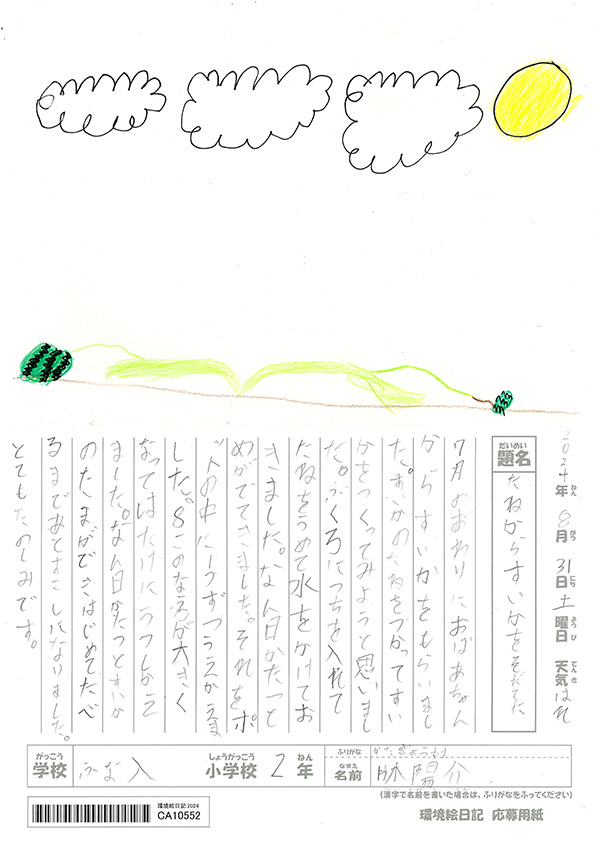 2024年 8月 31日 土曜日 天気 はれ
ねん がつ にち ようび てんき
だいめい
題名 たねからすいかをそだてた
7月のおわりにおばあちゃん
からすいかをもらいまし
た。すいかのたねをづかってすい
かをつくってみようと思いまし
た。ふくろにつちを入れて
たねをうめて水をかけてお
きました。なん日かたつと
めがでてきました。それをポ
ットの中に一つずつうえかえま
した。8このなえが大きく
なってはたけにうつしかえ
ました。なん日かたつとすいか
のたまができはじめてたべ
るまであとすこしになりました。
とてもたのしみです。
がっこう しょうがっこう ねん
学校 ふな入 小学校 2年
ふりがな
なまえ
名前 陽介
(漢字で名前を書いた場合は、ふりがなをふってください)
環境絵日記 2024
CA10552
環境絵日記 応募用紙